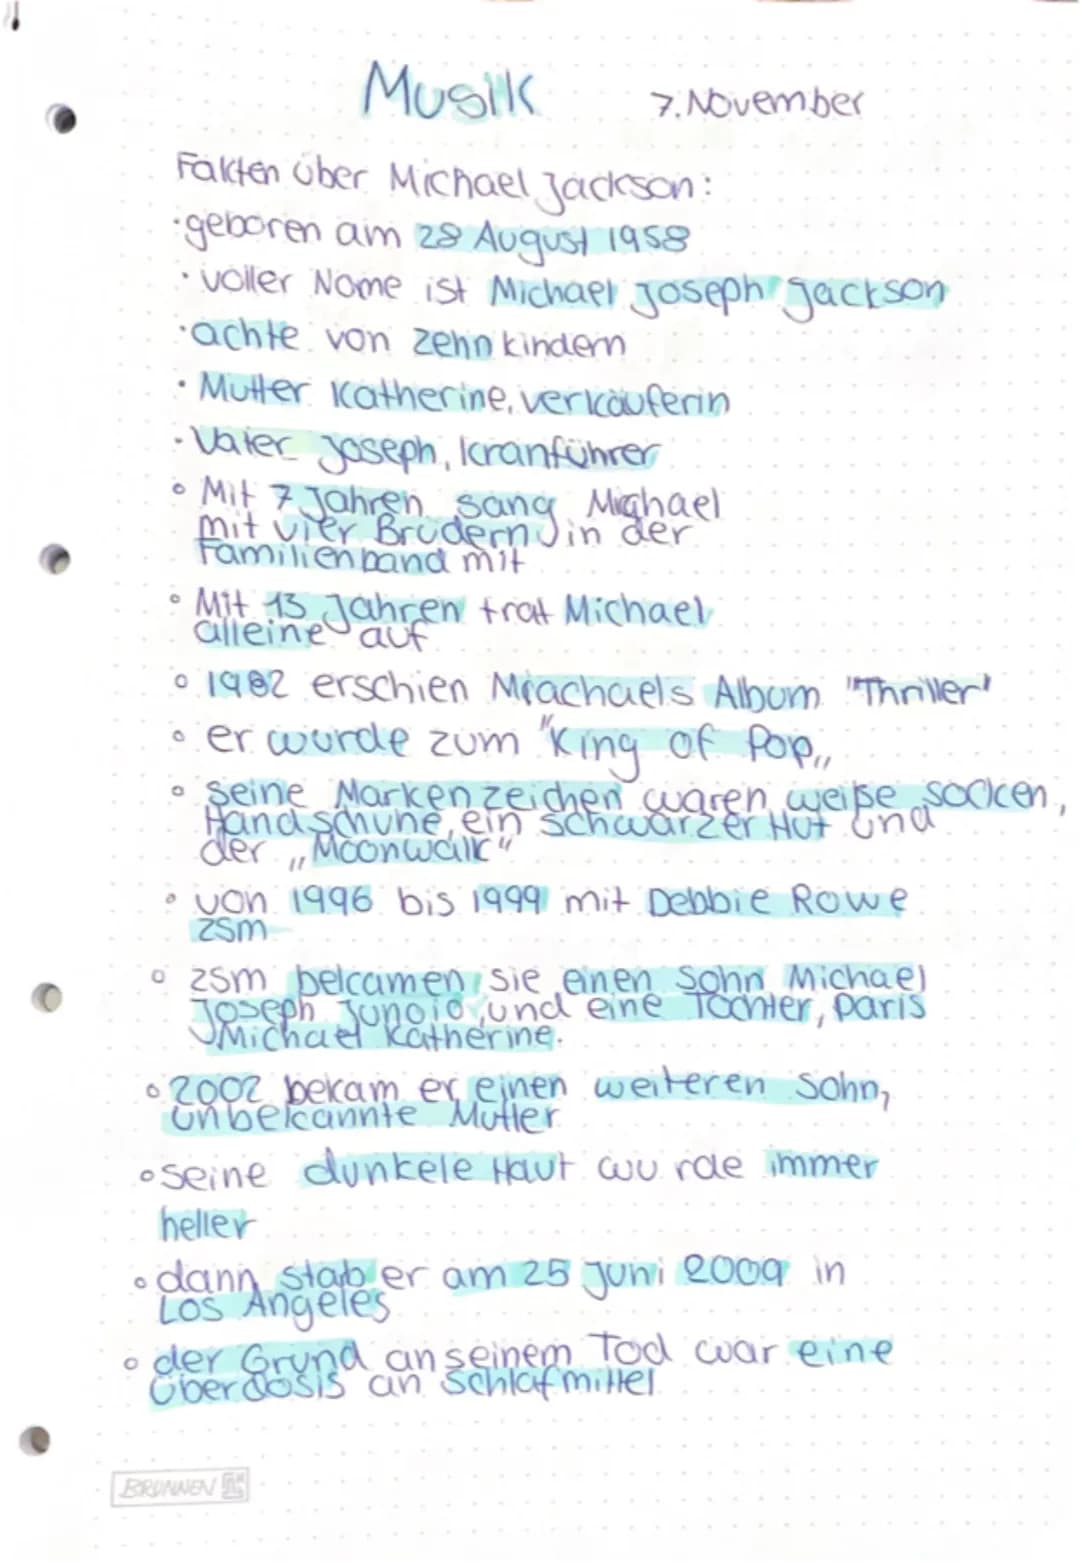 Musik 7. November
Fakten über Michael Jackson:
·geboren am 28 August 1958
· voller Name ist Michael Joseph Jackson
·achte von zehn kindern
· Mutter Katherine, verkäuferin
· Vater Joseph, kranführer
° Mit 7 Jahren sang Michael
mit vier Brüdern in der
Familienband mit
° Mit 13 Jahren trat Michael
alleine auf
° 1982 erschien Mrachaels Album "Thriller"
° er wurde zum "King of Pop„
° seine Markenzeichen waren weiße socken,
Handschuhe, ein schwarzer Hut und
der „Moonwalk"
° von 1996 bis 1999 mit Debbie Rowe
zsm
° zsm bekamen sie einen Sohn Michael
Joseph Junoio, und eine Tochter, paris
Michael Katherine.
° 2002 bekam er einen weiteren Sohn,
unbekannte Mutter
° seine dunkele Haut wurde immer
heller
° dann stab er am 25 Juni 2009 in
Los Angeles
° der Grund an seinem Tod war eine
überdosis an schlafmittel
BRUNNEN